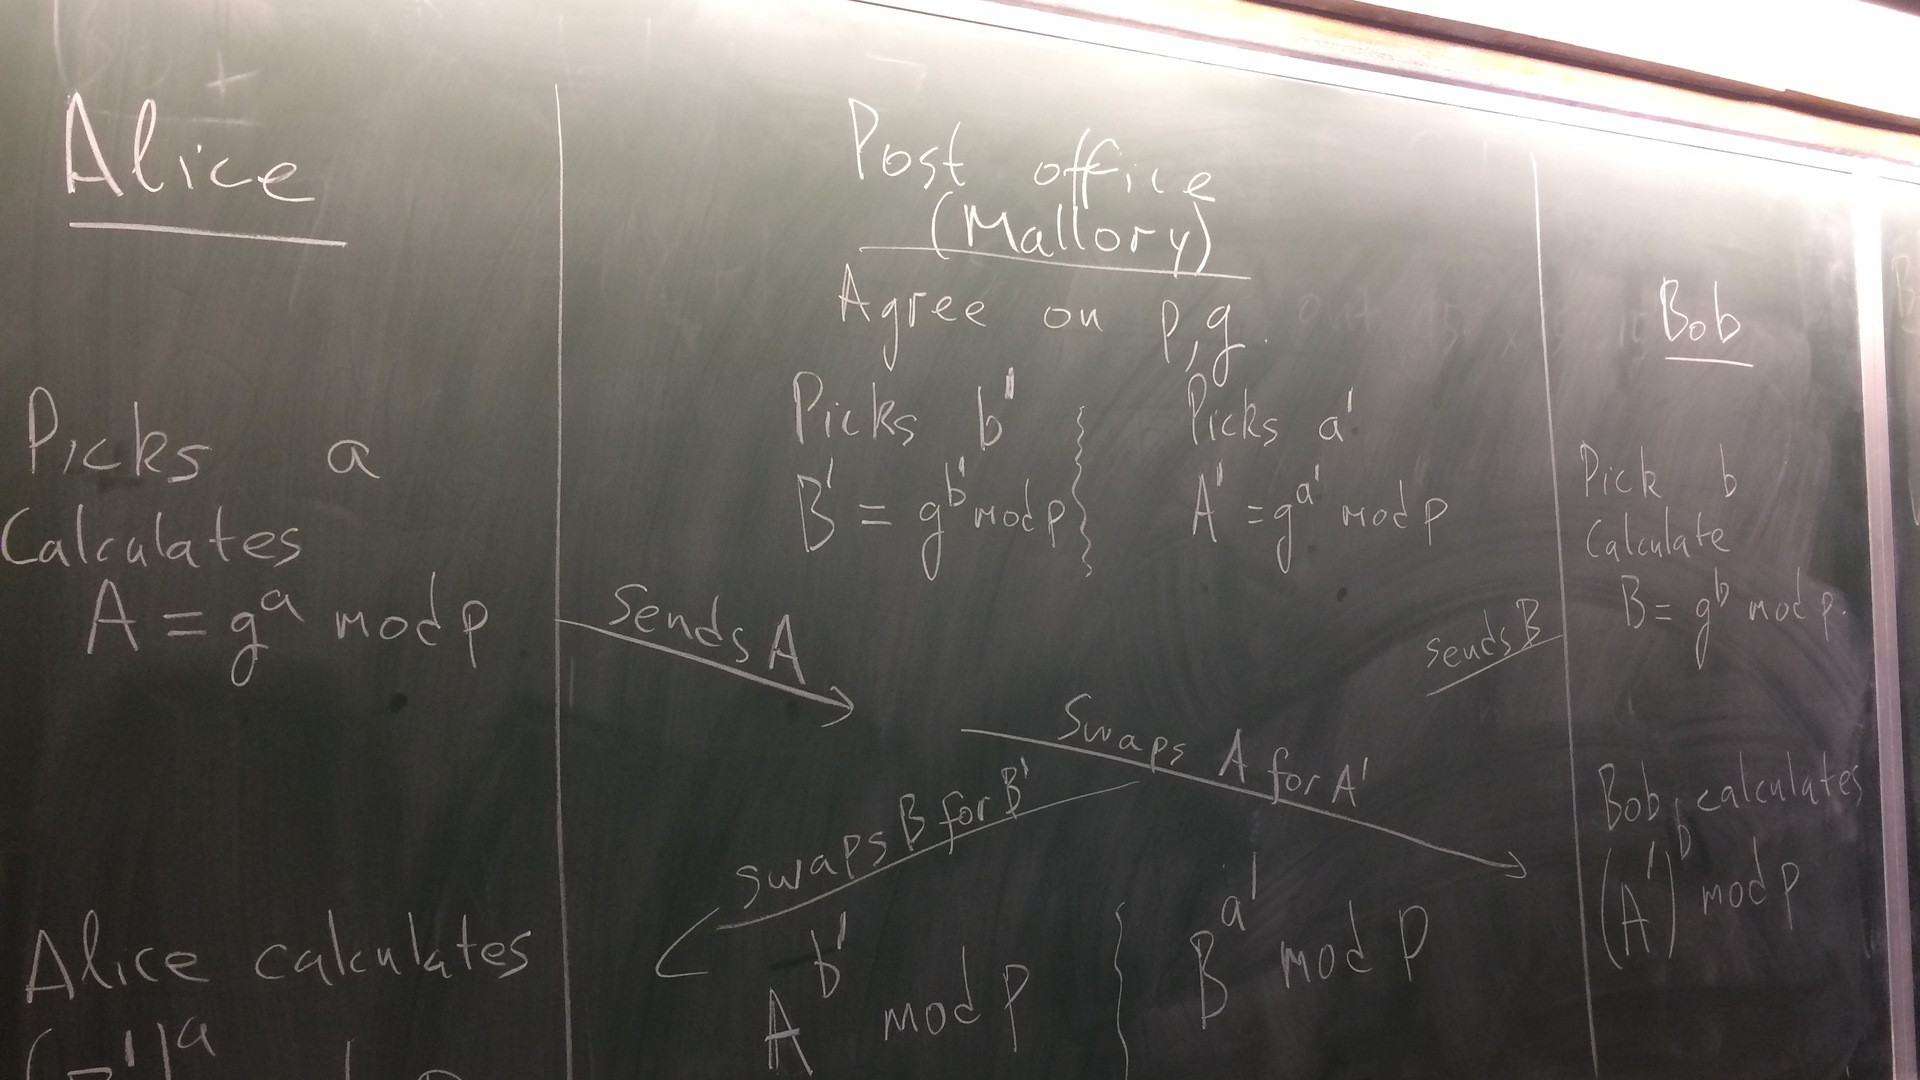 Alice
Picks a
Calculates
A = g^a mod p
Alice calculates
Post office
(Mallory)
Agree on p, g.
Picks b'
B' = g^b' mod p
Picks a'
A' = g^a' mod p
Sends A
sends B
Swaps A for A'
swaps B for B'
A^b' mod p
B^a' mod p
Bob
Pick b
Calculate
B = g^b mod p.
Bob calculates
(A')^b mod p